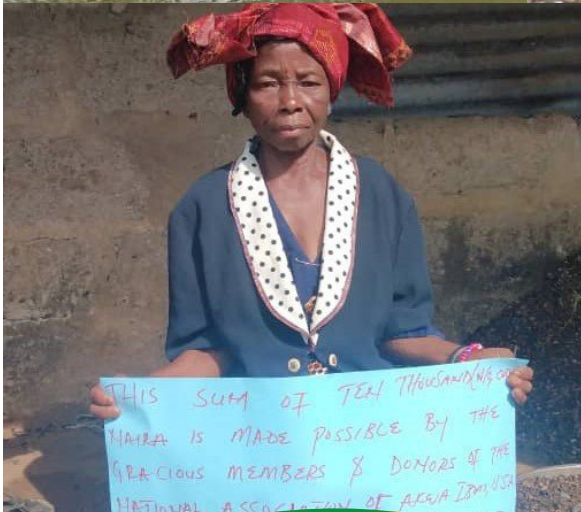 THIS SUM OF TEN THOUSAND
NAIRA IS MADE POSSIBLE BY THE
GRACIOUS MEMBERS & DONORS OF THE
NATIONAL ASSOCIATION OF AKWA IBOM, USA